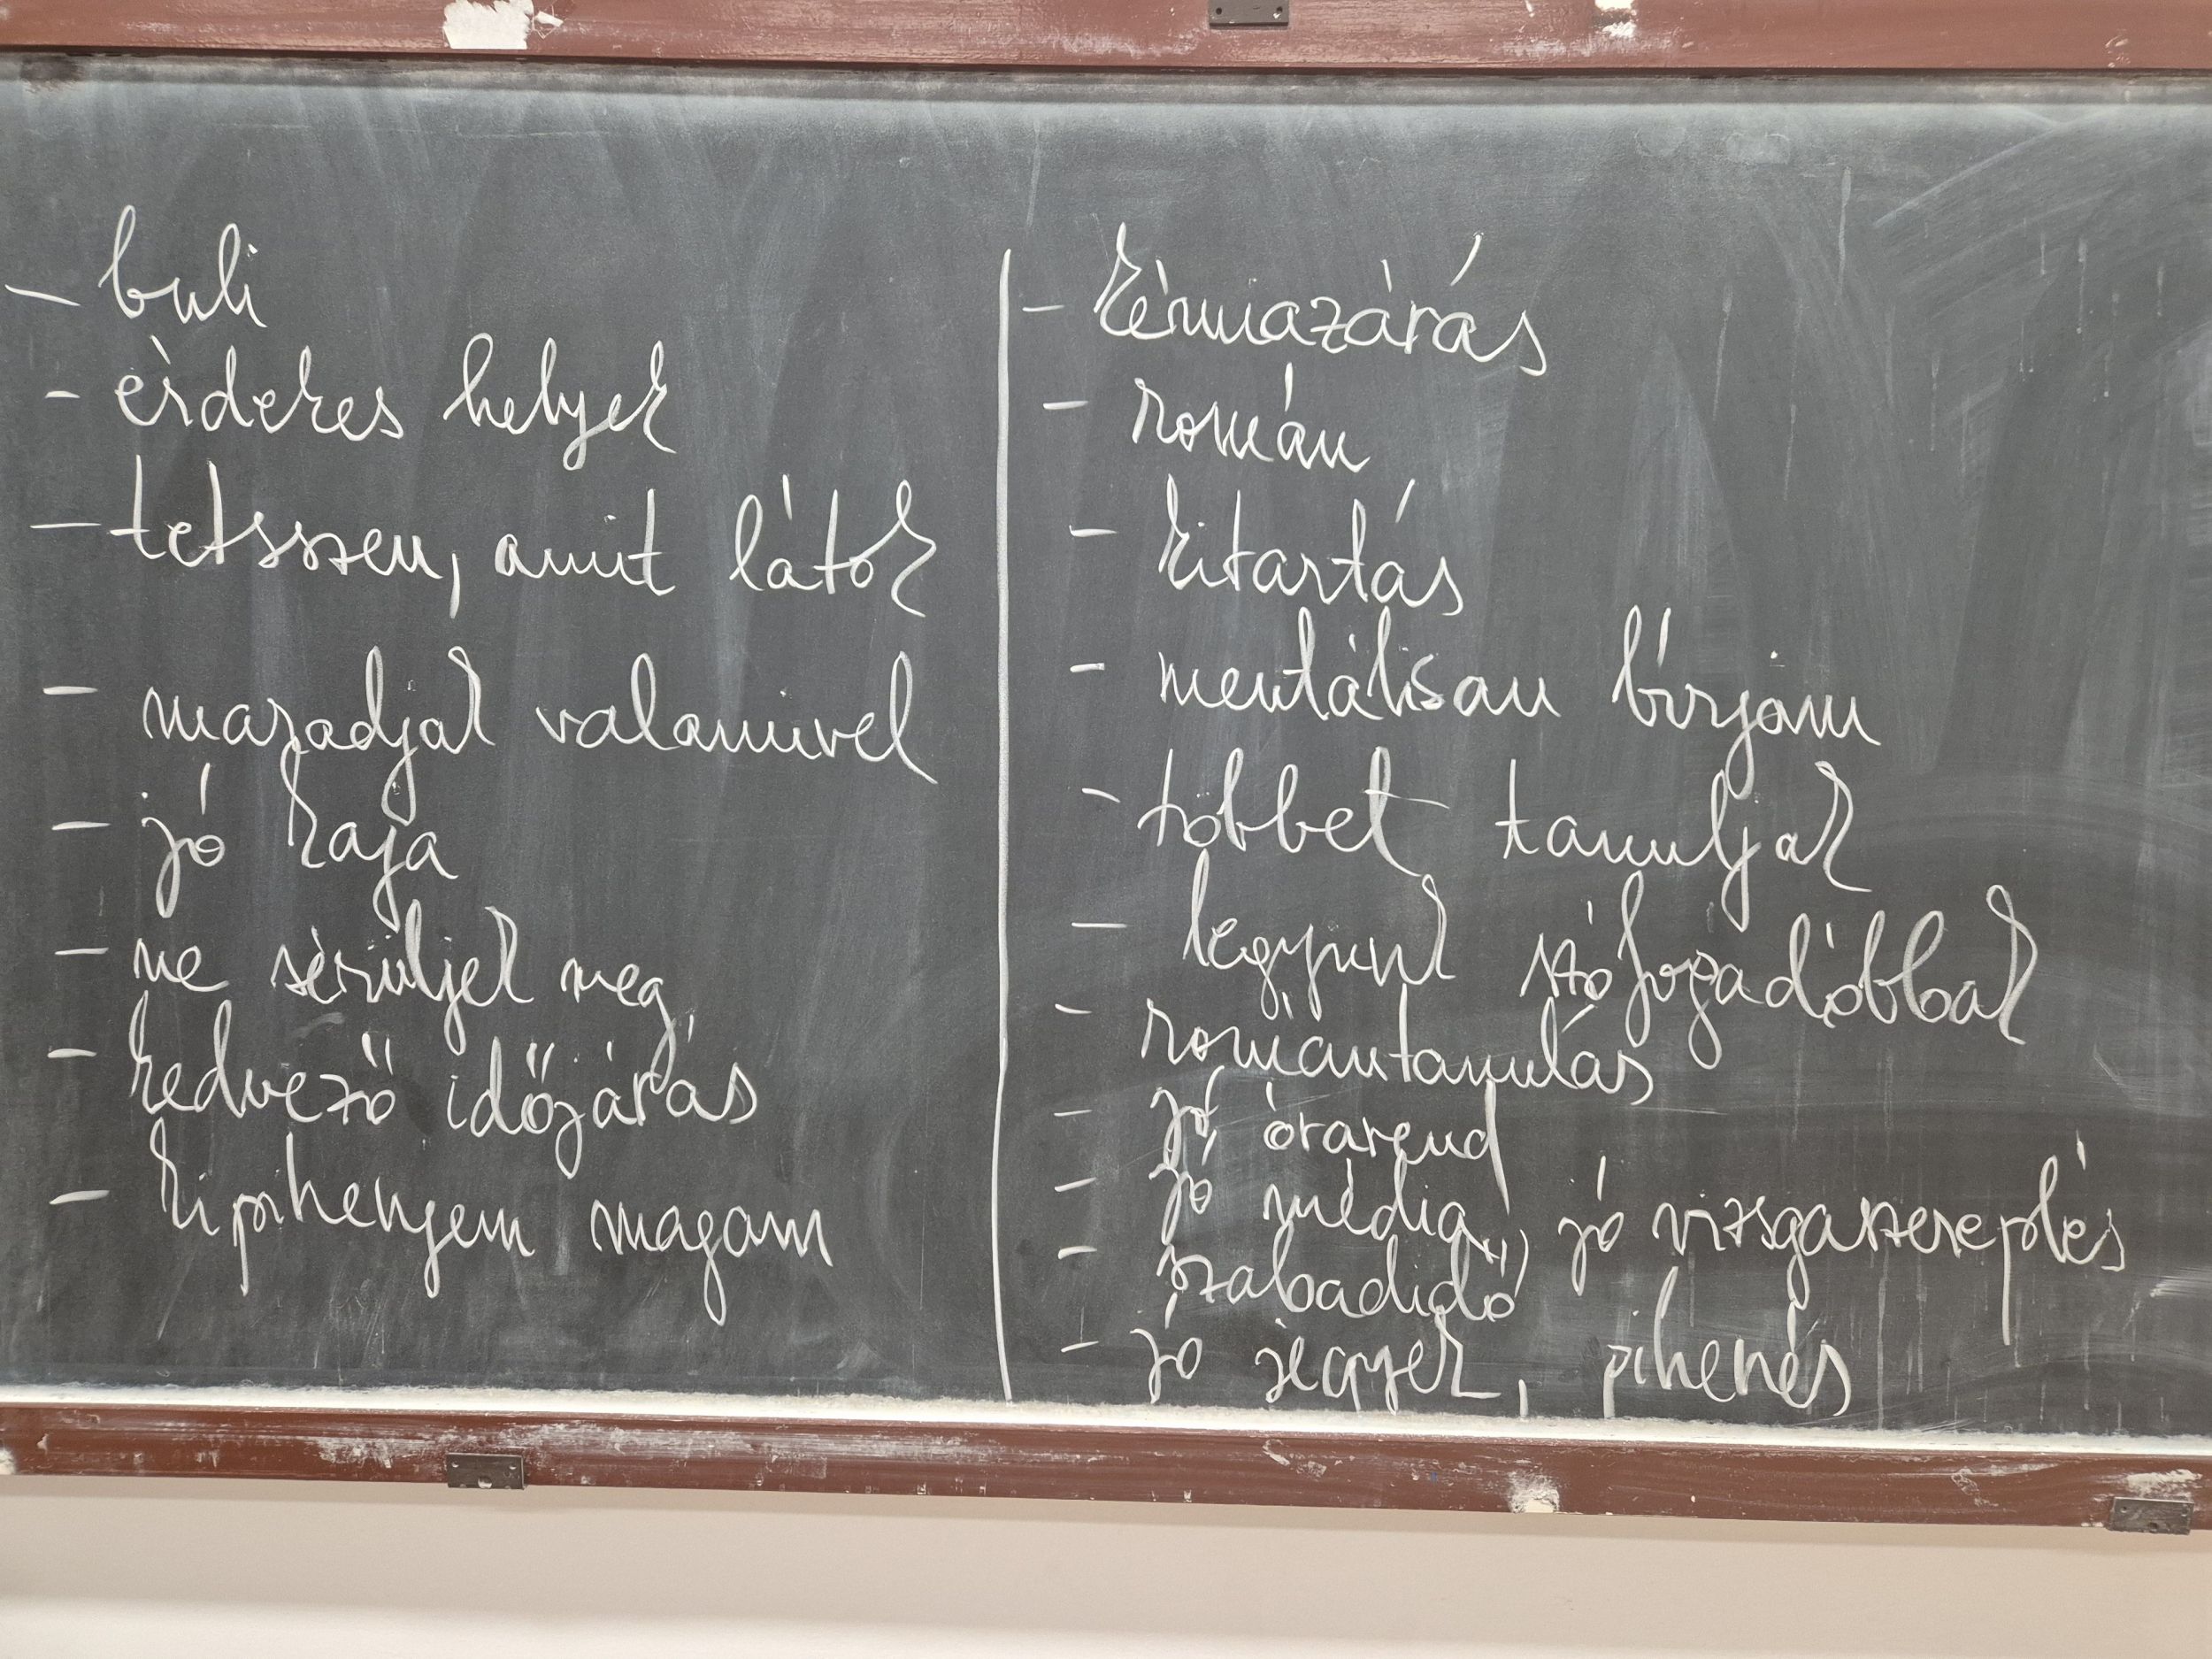 - buli
- érdekes helyek
- tetsszen, amit látok
- maradjak valamivel
- jó kaja
- ne sérüljek meg
- kedvező időjárás
- kipihenjem magam
- kémiazárás
- román
- kitartás
- mentálisan bírjam
- többet tanuljak
- legyünk szófogadóbbak
- romántanulás
- jó órarend
- jó média, jó vizsgaszereplés
- szabadidő
- jó jegyek, pihenés